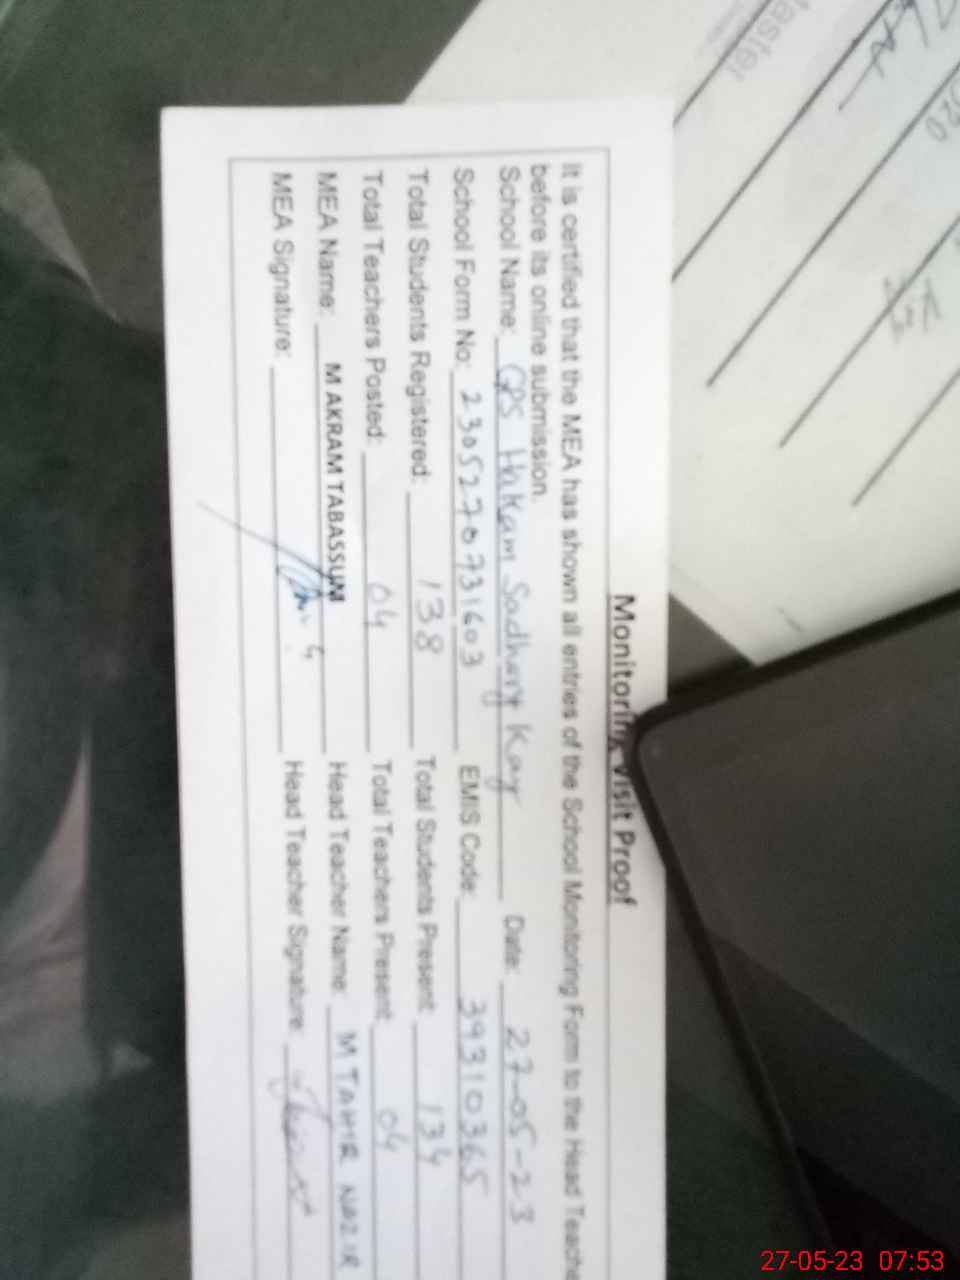 Monitoring Visit Proof
It is certified that the MEA has shown all entries of the School Monitoring Form to the Head Teache
before its online submission.
School Name: GPS Hakam Sadhary Kay Date: 27-05-23
School Form No: 2305270731603 EMIS Code: 39310365
Total Students Registered: 138 Total Students Present: 134
Total Teachers Posted: 04 Total Teachers Present: 04
MEA Name: M AKRAM TABASSUM Head Teacher Name: M TAHIR NAZIR
MEA Signature: Head Teacher Signature:
aster
320
Kay
27-05-23 07:53